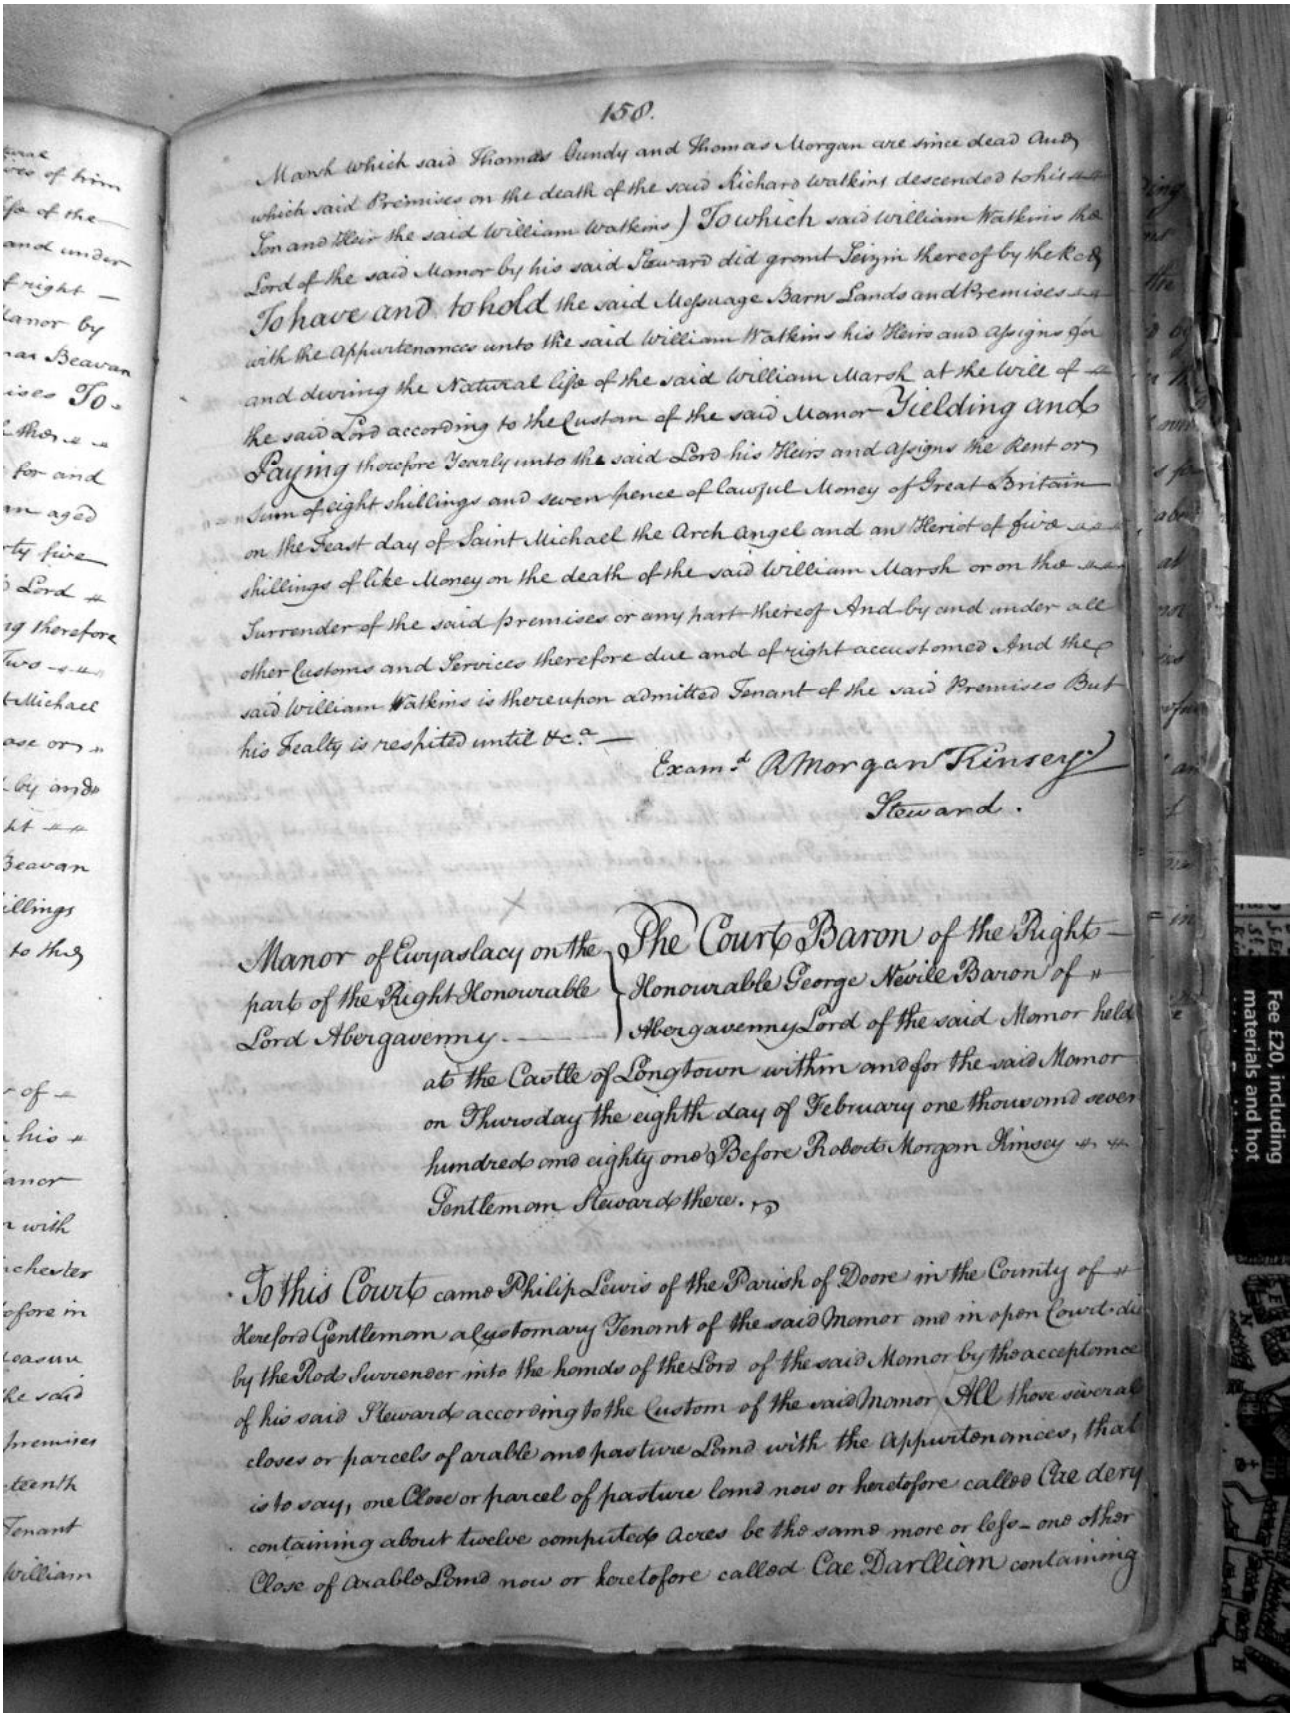 158.
Marsh which said Thomas Gundy and Thomas Morgan are since dead And
which said Premises on the death of the said Richard Watkins descended to his
Son and Heir the said William Watkins) To which said William Watkins the
Lord of the said Manor by his said Steward did grant Seizin thereof by the Rod
To have and to hold the said Messuage Barn Lands and Premises
with the Appurtenances unto the said William Watkins his Heirs and Assigns for
and during the Natural life of the said William Marsh at the Will of
the said Lord according to the Custom of the said Manor Yielding and
Paying therefore Yearly unto the said Lord his Heirs and Assigns the Rent or
Sum of eight shillings and seven pence of lawful Money of Great Britain
on the Feast day of Saint Michael the Arch Angel and an Heriot of five
shillings of like Money on the death of the said William Marsh or on the
Surrender of the said premises or any part thereof And by and under all
other Customs and Services therefore due and of right accustomed And the
said William Watkins is thereupon admitted Tenant of the said Premises But
his Fealty is respited until &c.a —
Exam.d R Morgan Kinsey
Steward.
Manor of Ewyaslacy on the
part of the Right Honourable
Lord Abergavenny.
The Court Baron of the Right
Honourable George Nevile Baron of
Abergavenny Lord of the said Manor held
at the Castle of Longtown within and for the said Manor
on Thursday the eighth day of February one thousand seven
hundred and eighty one Before Robert Morgan Kinsey
Gentleman Steward there.
To this Court came Philip Lewis of the Parish of Doore in the County of
Hereford Gentleman a Customary Tenant of the said Manor and in open Court did
by the Rod Surrender into the hands of the Lord of the said Manor by the acceptance
of his said Steward according to the Custom of the said Manor All those several
closes or parcels of arable and pasture Land with the Appurtenances, that
is to say, one Close or parcel of pasture land now or heretofore called Cae dery
containing about twelve computed Acres be the same more or less - one other
Close of Arable Land now or heretofore called Cae Darllian containing
ives of him
life of the
and under
f right —
Manor by
Beavan
To
the
for and
an aged
ty five
Lord
therefore
Two
Michael
or
by and
Beavan
illings
to the
of
his
anor
with
chester
tofore in
he said
premises
teenth
Tenant
William
Fee £20, including
materials and hot